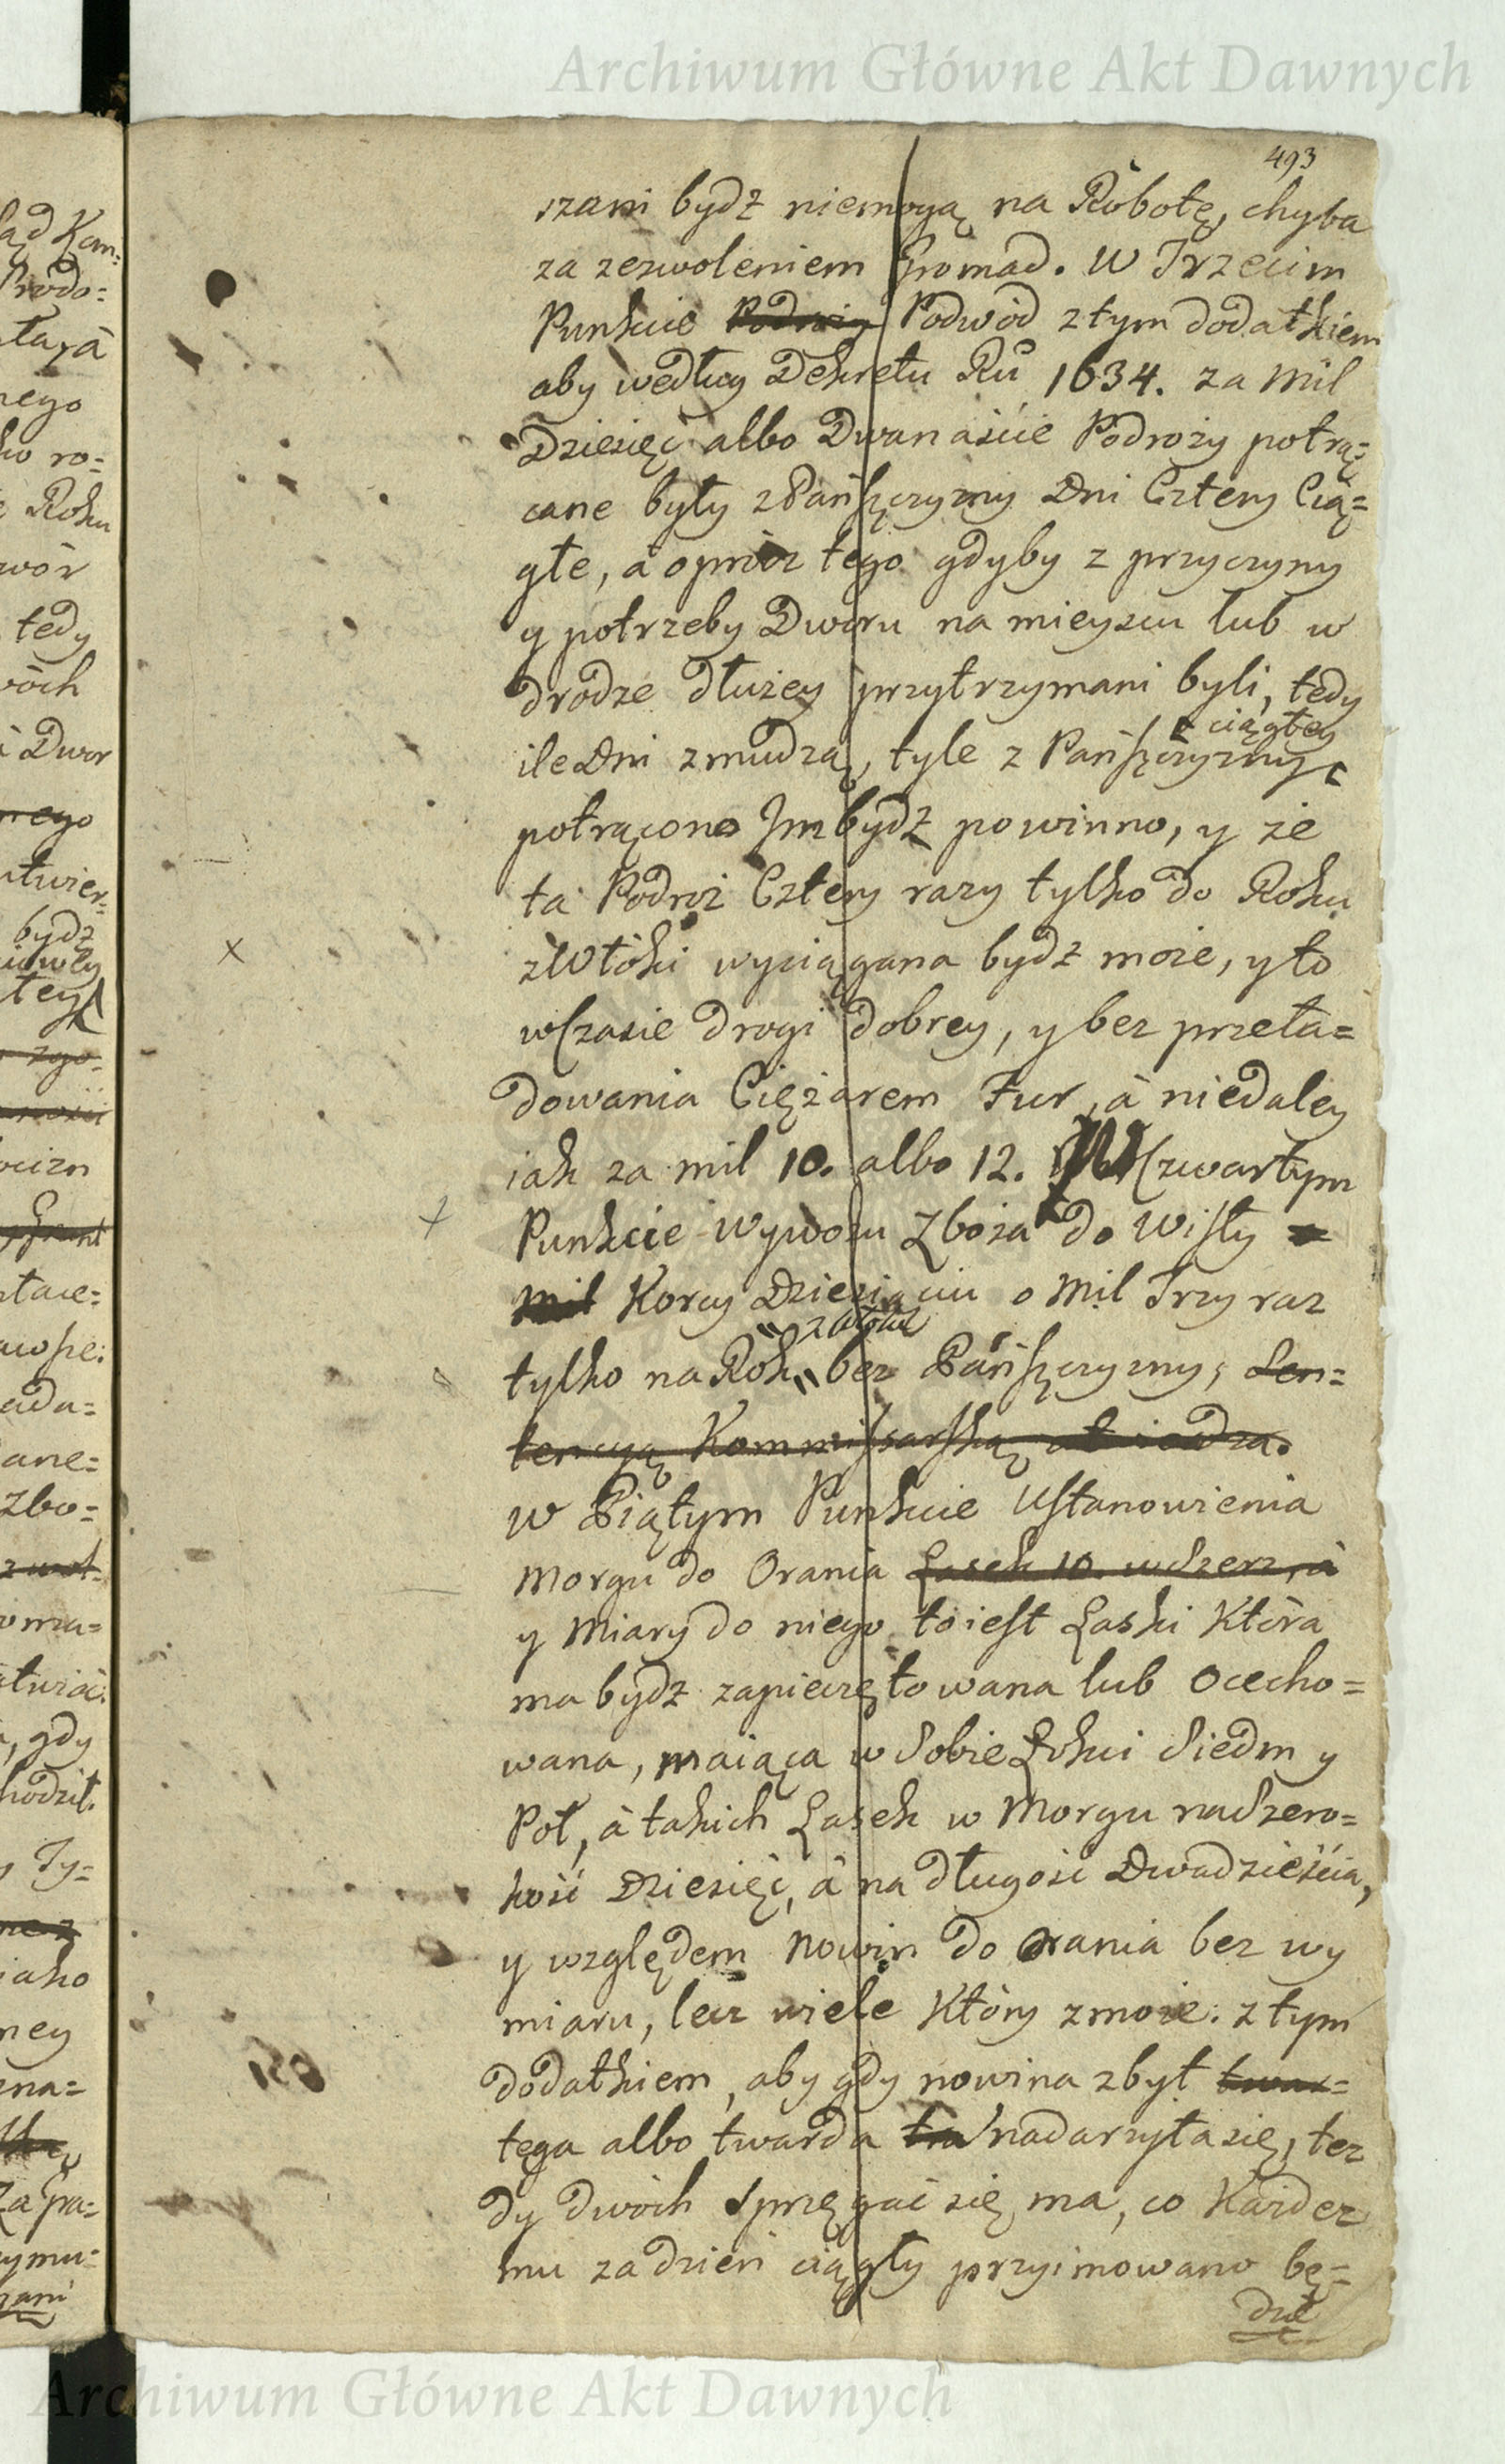 Archiwum Główne Akt Dawnych
493
szani bydź niemogą na Robotę, chyba
za zezwoleniem Gromad. W Trzecim
Punkcie Podwód z tym dodatkiem
aby według Dekretu Ru 1634. za Mil
Dziesięć albo Dwanaście Podroży potrą=
cane były z Pańszczyzny Dni Cztery Cią=
głe, à oprócz tego gdyby z przyczyny
y potrzeby Dworu na mieyscu lub w
drodze dłużey przytrzymani byli, tedy
ciągłey
ile Dni zmudzą, tyle z Pańszczyzny
potrącono Im bydź powinno, y że
ta Podroż Cztery razy tylko do Roku
z Włóki wyciągana bydź może, y to
w Czasie drogi dobrey, y bez przeła=
dowania Ciężarem Fur, à niedaley
iak za mil 10. albo 12. W Czwartym
Punkcie Wywozu Zboża do Wisły
Mil Korcy Dziesiąciu o Mil Trzy raz
z Włóki
tylko na Rok, bez Pańszczyzny, Sen=
tencyą Kommissarską
w Piątym Punkcie Ustanowienia
Morgu do Orania Łasek 10. wszerz, à
y Miary do niego to iest Łaski Która
ma bydź zapieczętowana lub Ocecho=
wana, maiąca w Sobie Łokci Siedm y
Poł, à takich Łasek w Morgu na Szero=
kość Dziesięć, à na długość Dwadzieścia,
y względem Nowin do Orania bez wy
miaru, lecz wiele Który zmoże. z tym
dodatkiem, aby gdy nowina zbyt twar=
tęga albo twarda nadarzyła się, te=
dy dwóch Sprzęgać się ma, co Każde=
mu za dzień ciągły przyimowano bę=
dzie
Archiwum Główne Akt Dawnych